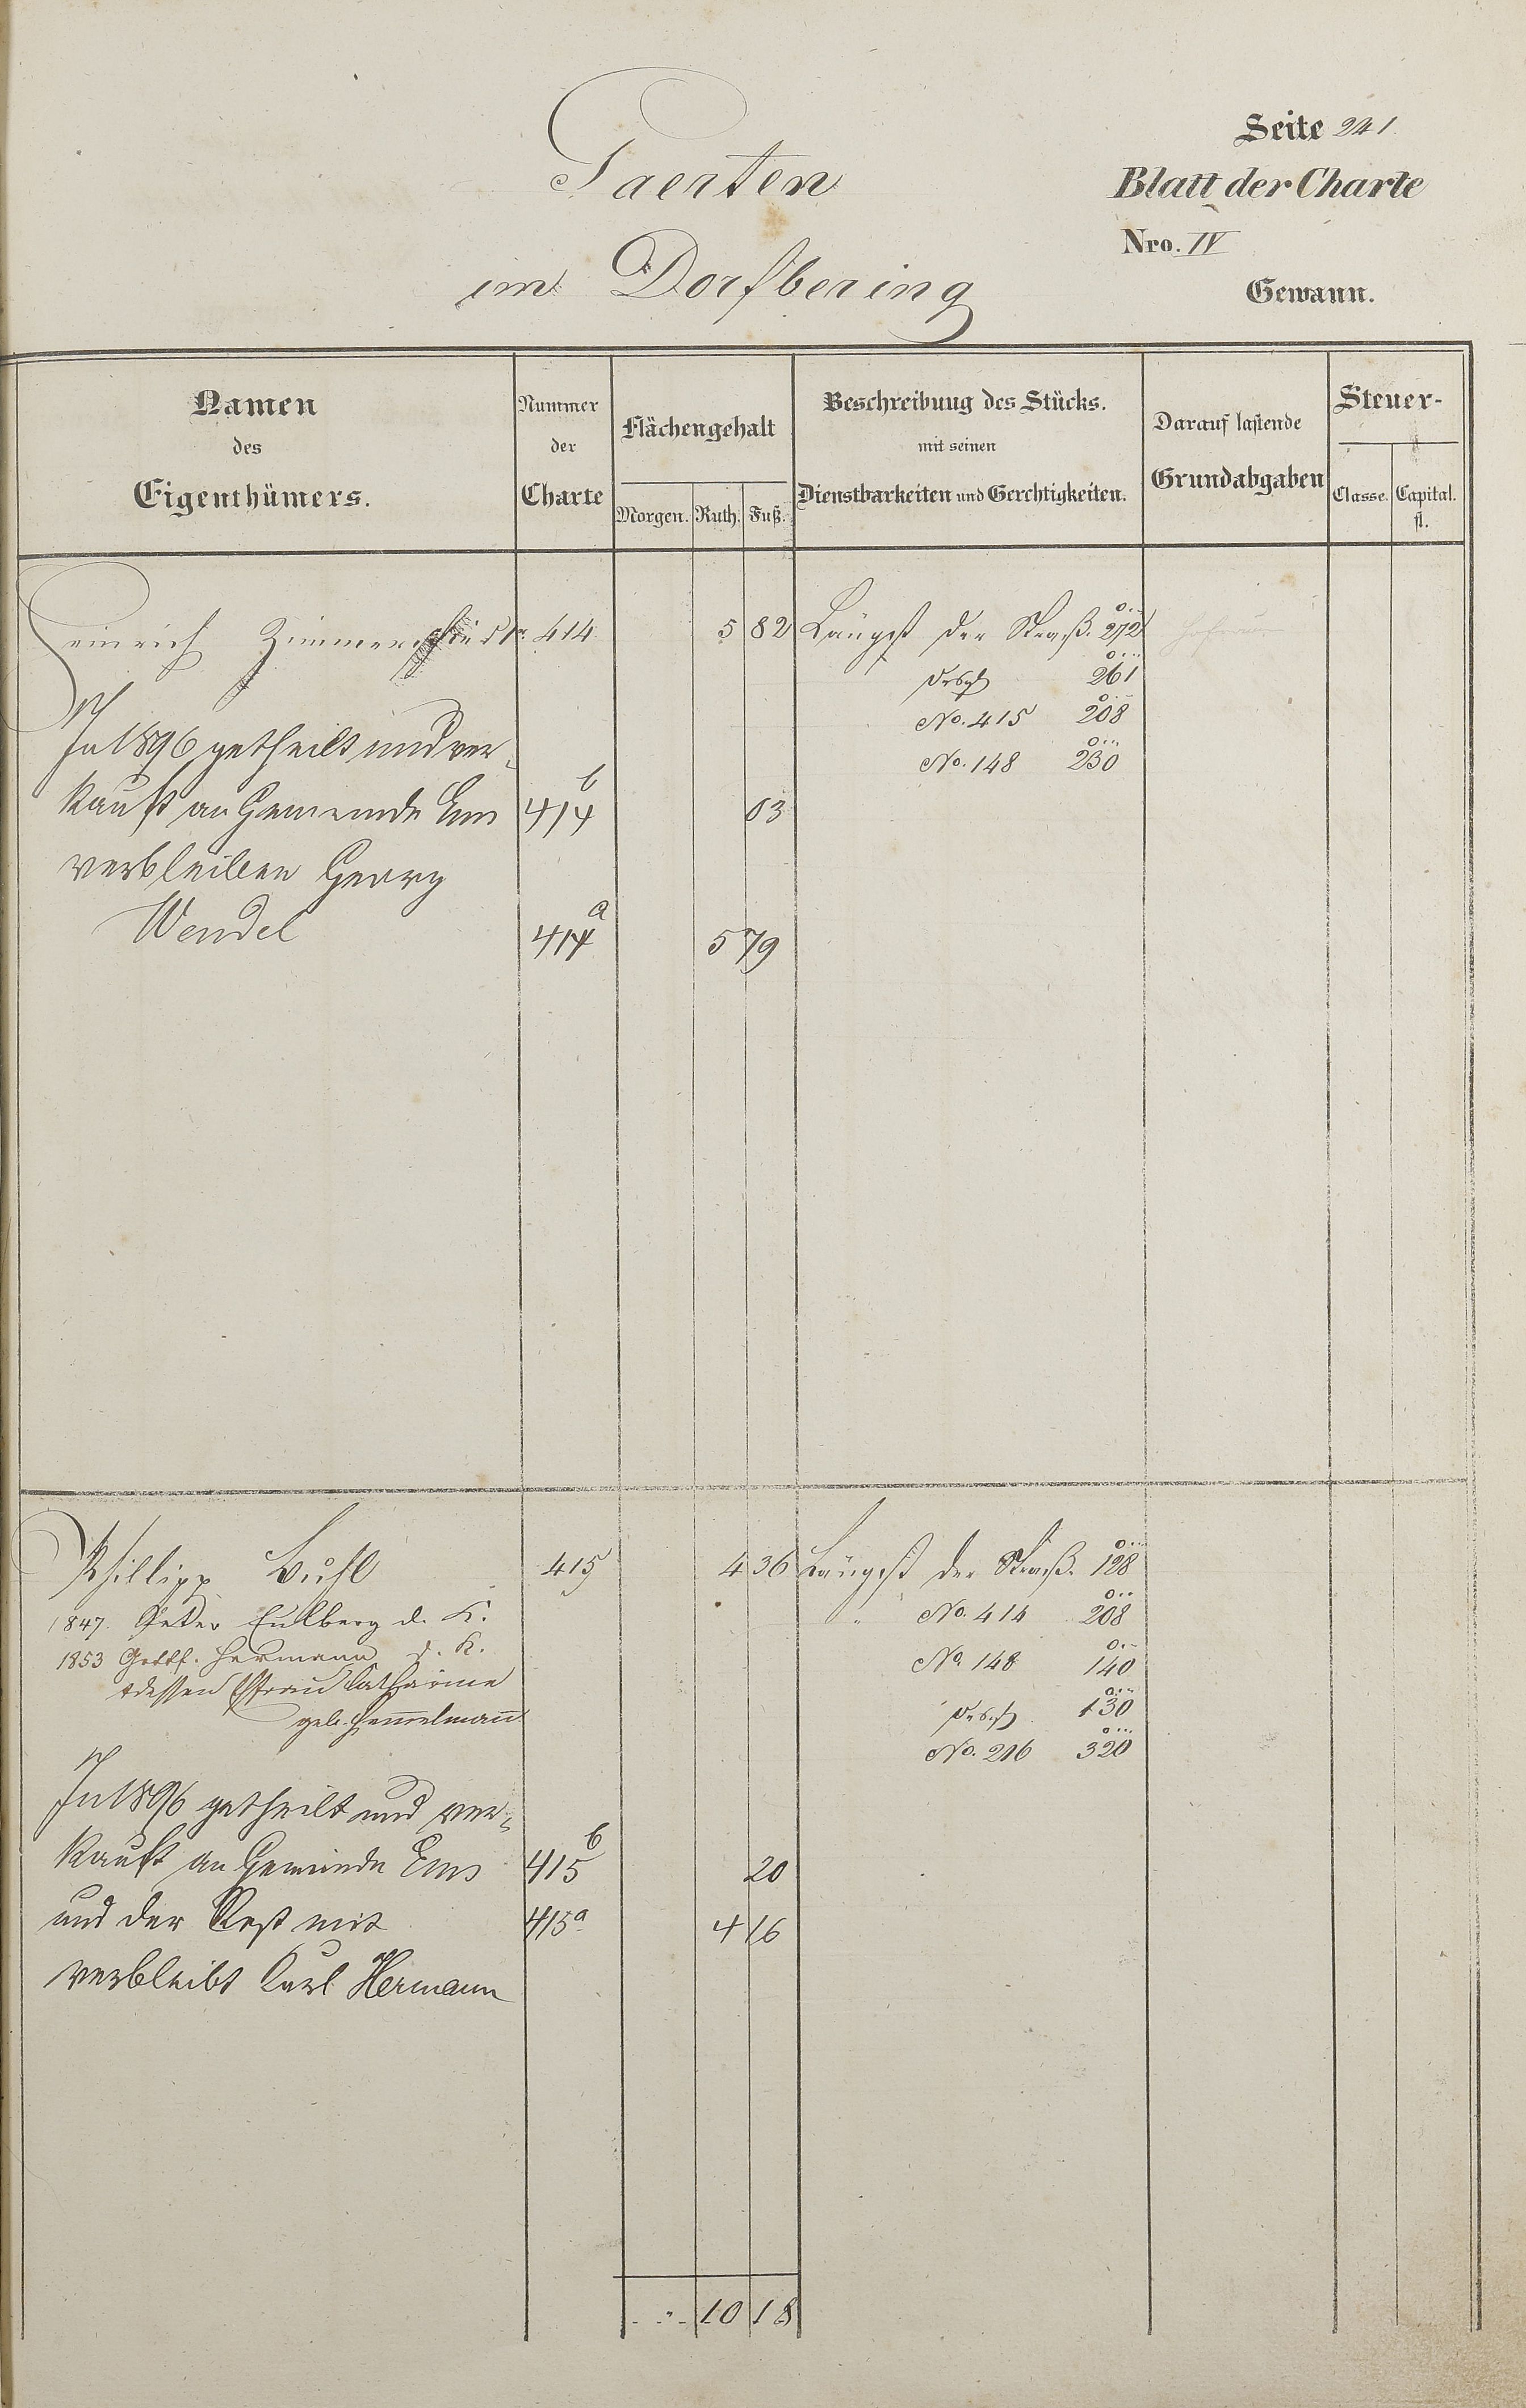 Gaerten
im Dorfbering
Seite 241
Blatt der Charte
Nro. IV
Gewann.
Namen
des
Eigenthümers.
Nummer
der
Charte
Flächengehalt
Morgen. Ruth. Fuß.
Beschreibung des Stücks.
mit seinen
Dienstbarkeiten und Gerechtigkeiten.
Darauf lastende
Grundabgaben
Steuer-
Classe. Capital.
fl.
Heinrich 414 5 82 Längst der Straß. 272
261
No. 415 208
No. 148 230
In 1896 getheilt und ver-
kauft an Gemeinde Ems 414 b 03
verbleiben Georg
Wendel 414 a 5 79
Phillipp Buhl 415 4 36 Längst der Straß. 128
1847. Peter Eulberg d. K. " No. 414 208
1853 Gottf. Hermann d. K. No. 148 140
& dessen Ehefrau Catharine 130
geb. Hem̄elman̄ No. 216 320
In 1896 getheilt und ver-
kauft an Gemeinde Ems 415 b 20
und der Rest mit 415 a 4 16
verbleibt Karl Hermann
- " - 10 18